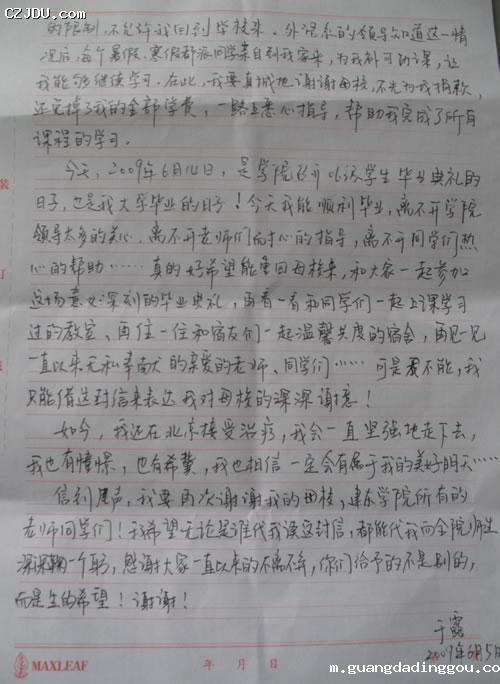 CZJDU.COM
的限制,不允许我回到学校来。外语系的领导知道这一情
况后,每个暑假、寒假都派同学亲自到我家来,为我补习功课,让
我能够继续学习。在此,我要真诚地谢谢母校,不光为我捐款,
还免掉了我的全部学费,一路上悉心指导,帮助我完成了所有
课程的学习。
今天,2009年6月14日,是学院召开06级学生毕业典礼的
日子,也是我大学毕业的日子!今天我能顺利毕业,离不开学院
领导太多的关心,离不开老师们耐心的指导,离不开同学们热
心的帮助……真的好希望能重回母校来,和大家一起参加
这场意义深刻的毕业典礼,再看一看和同学们一起上课学习
过的教室、再住一住和宿友们一起温馨共度的宿舍,再见一见
一直以来无私奉献的亲爱的老师、同学们……可是不能,我
只能借这封信来表达我对母校的深深谢意!
如今,我还在北京接受治疗,我会一直坚强地走下去,
我也有憧憬,也有希冀,我也相信一定会有属于我的美好明天……
信到尾声,我要再次谢谢我的母校,建东学院所有的
老师同学们!我希望无论是谁代我读这封信,都能代我向全院师生
深深鞠一个躬,感谢大家一直以来的不离不弃,你们给予的不是别的,
而是生的希望!谢谢!
于露
2009年6月5日
MAXLEAF
年 月 日
m.guangdadinggou.com
装
订